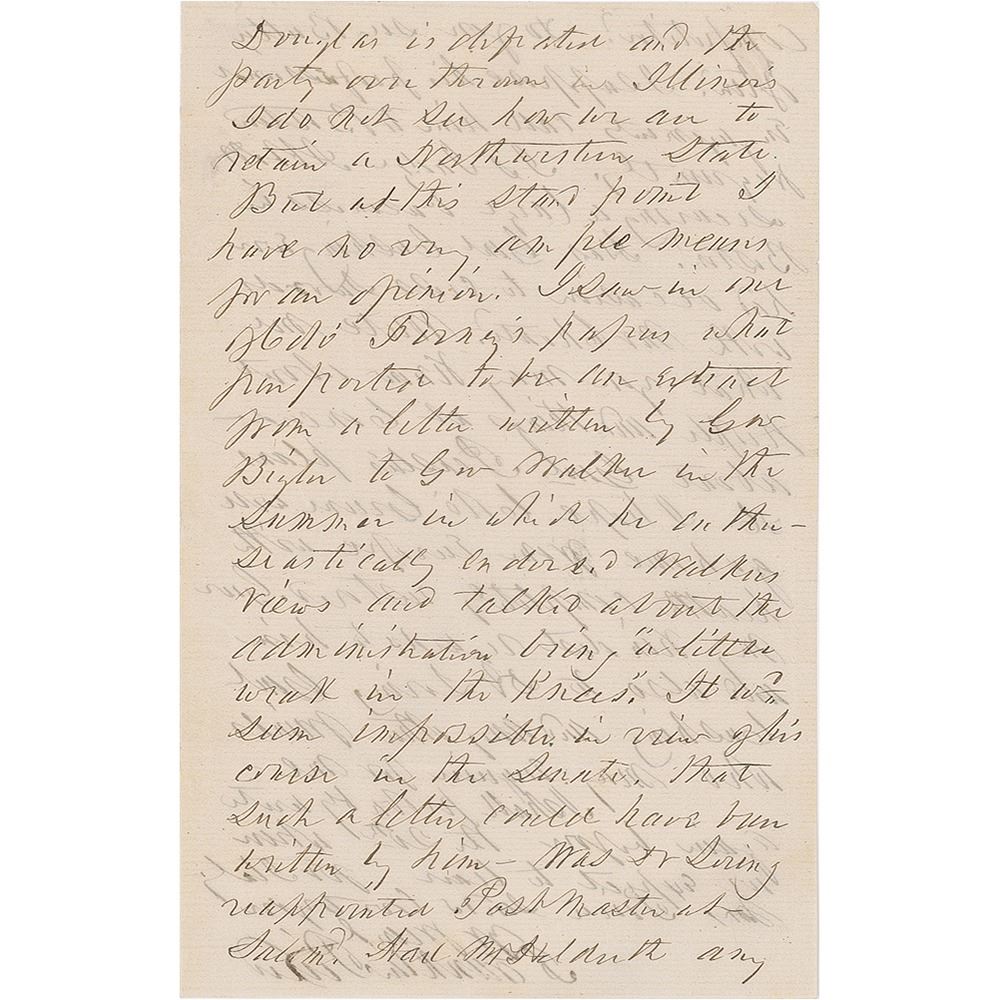 Douglas is defeated and the
party over thrown in Illinois
I do not see how we are to
retain a Northwestern State.
But at this stand point I
have no very ample means
for an opinion. I saw in one
of Forney's papers what
purported to be an extract
from a letter written by Gov
Bigler to Gov Walker in the
Summer in which he enthu-
siastically endorsed Walkers
views and talked about the
administration being "a little
weak in the knees". It wd
seem impossible in view of his
course in the Senate, that
such a letter could have been
written by him - Was Dr Loring
reappointed Post Master at
Salem? Had Mr Hildreth any